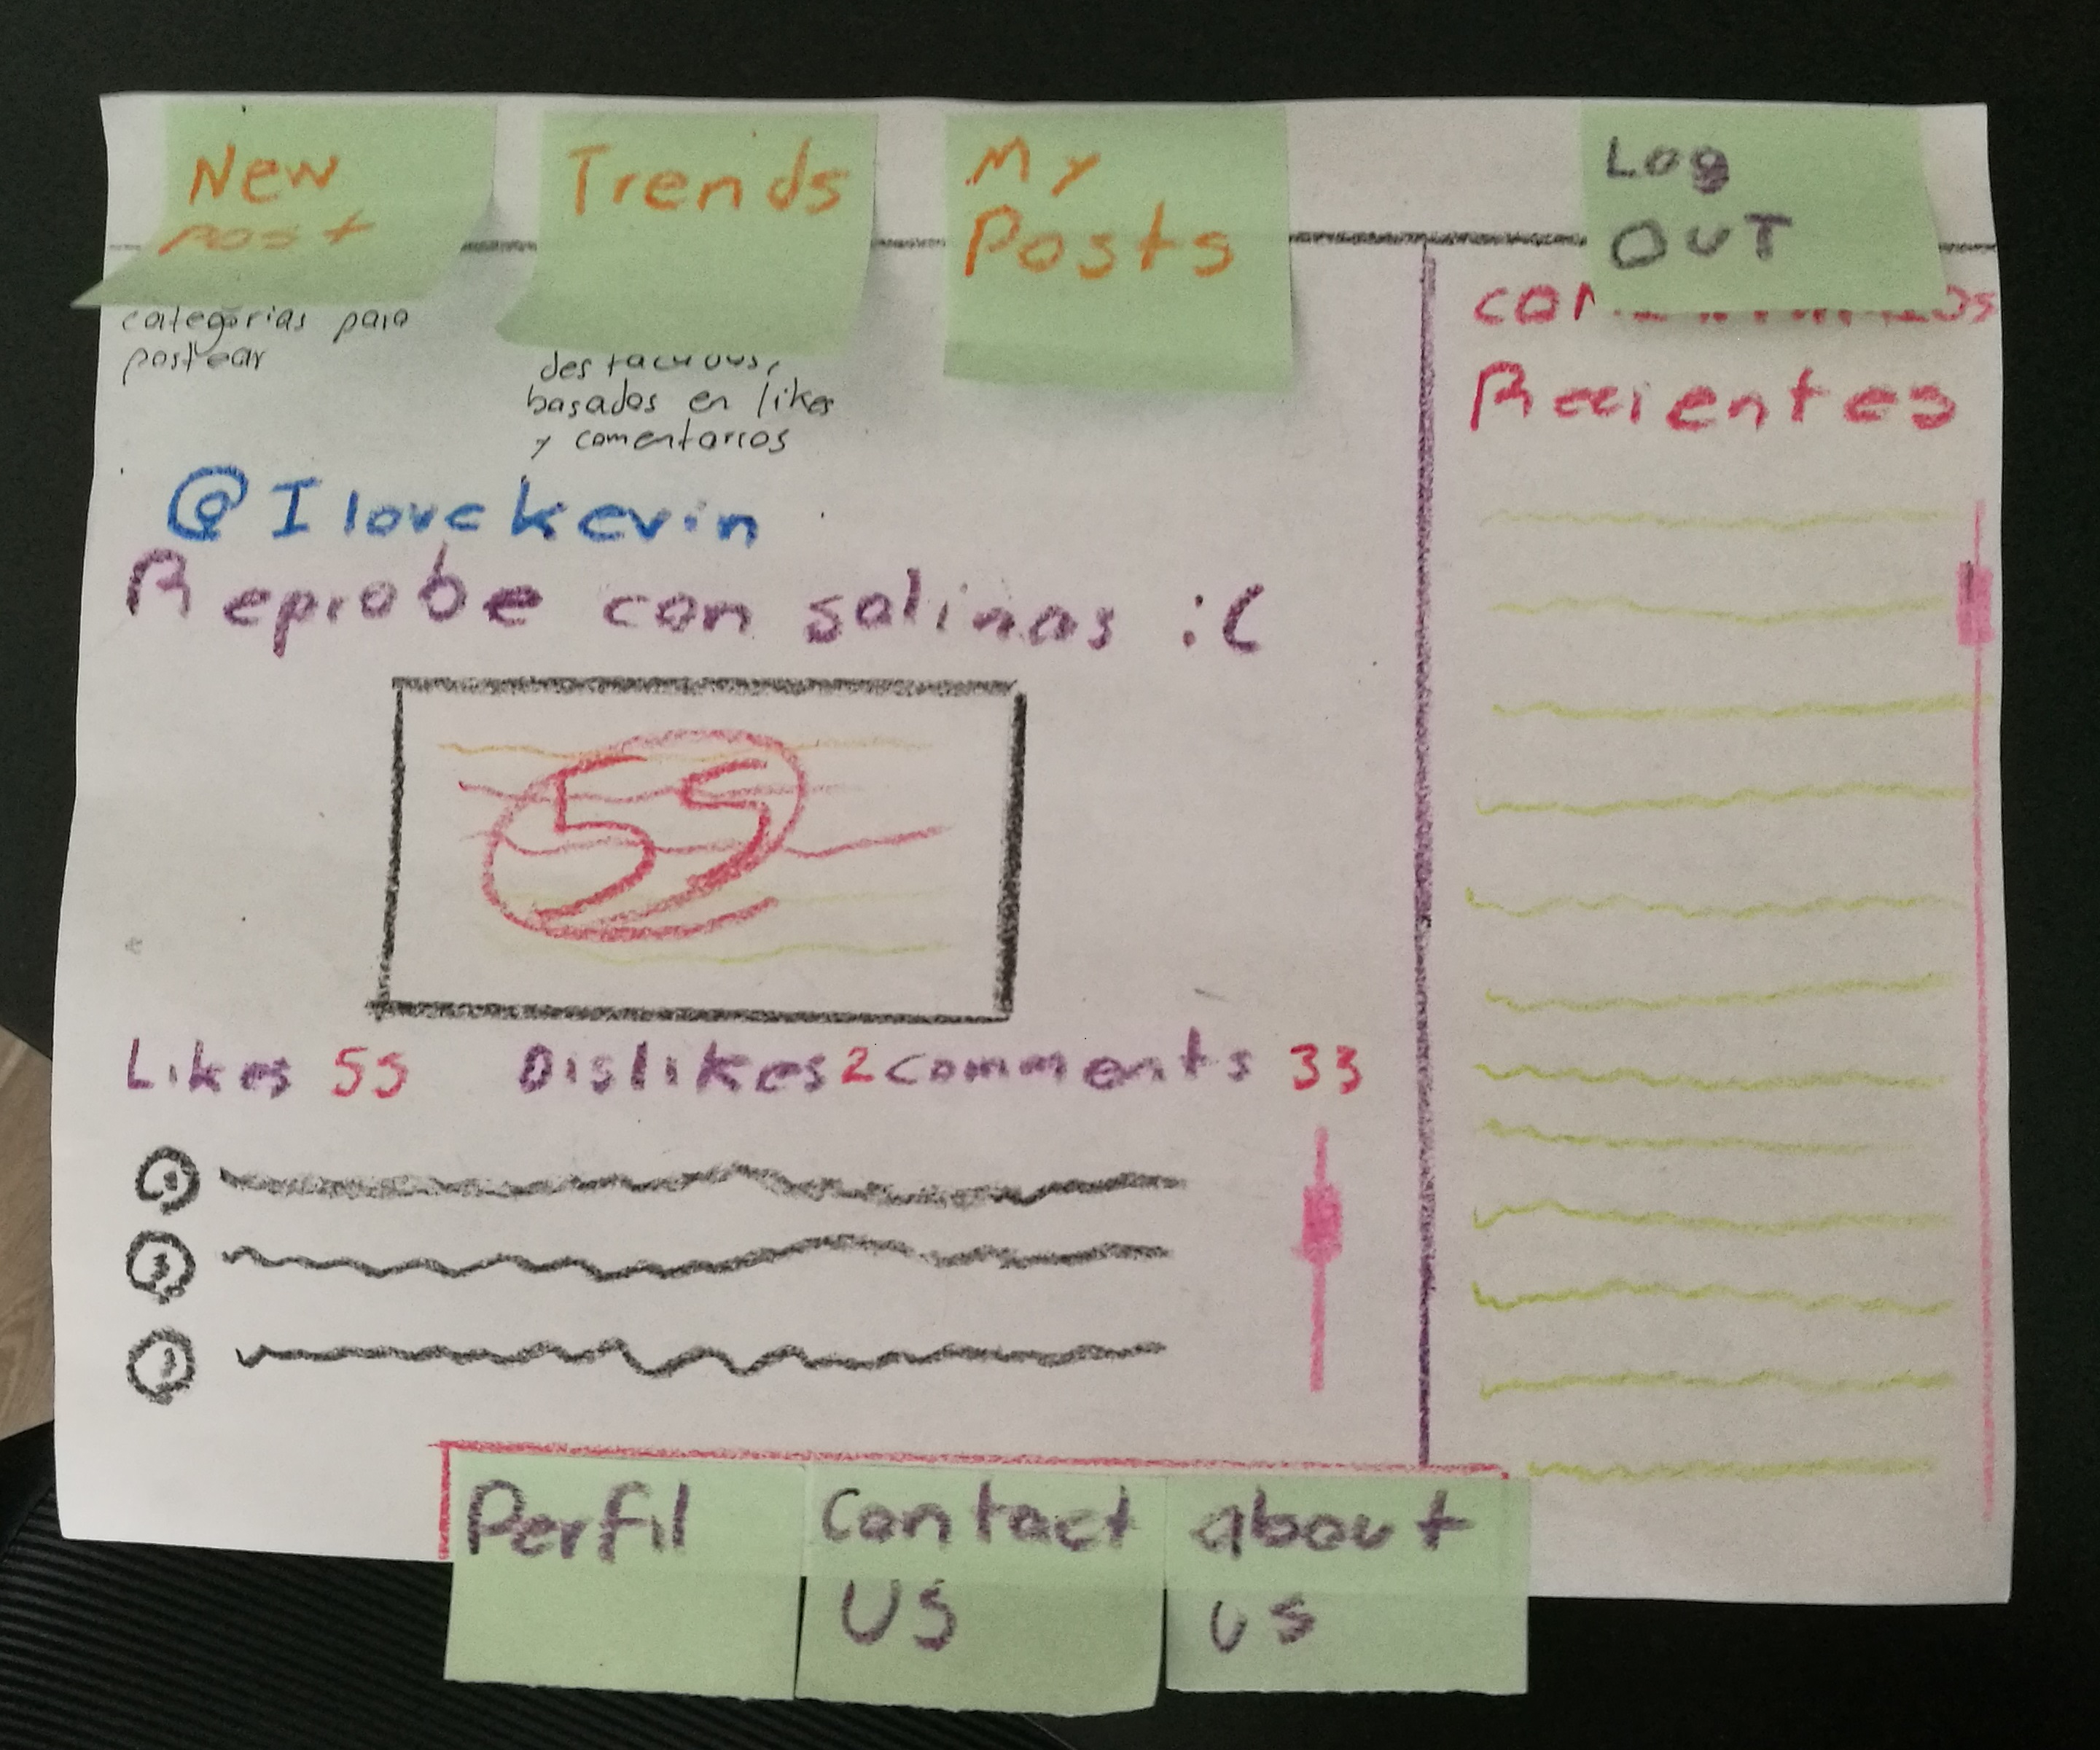 New
post
Trends
My
Posts
Log
OUT
categorias para
postear
basados en likes
y comentarios
Recientes
@Ilovekevin
Reprobe con salinas :(
55
Likes 55 Dislikes 2 comments 33
Perfil
Contact
US
about
us